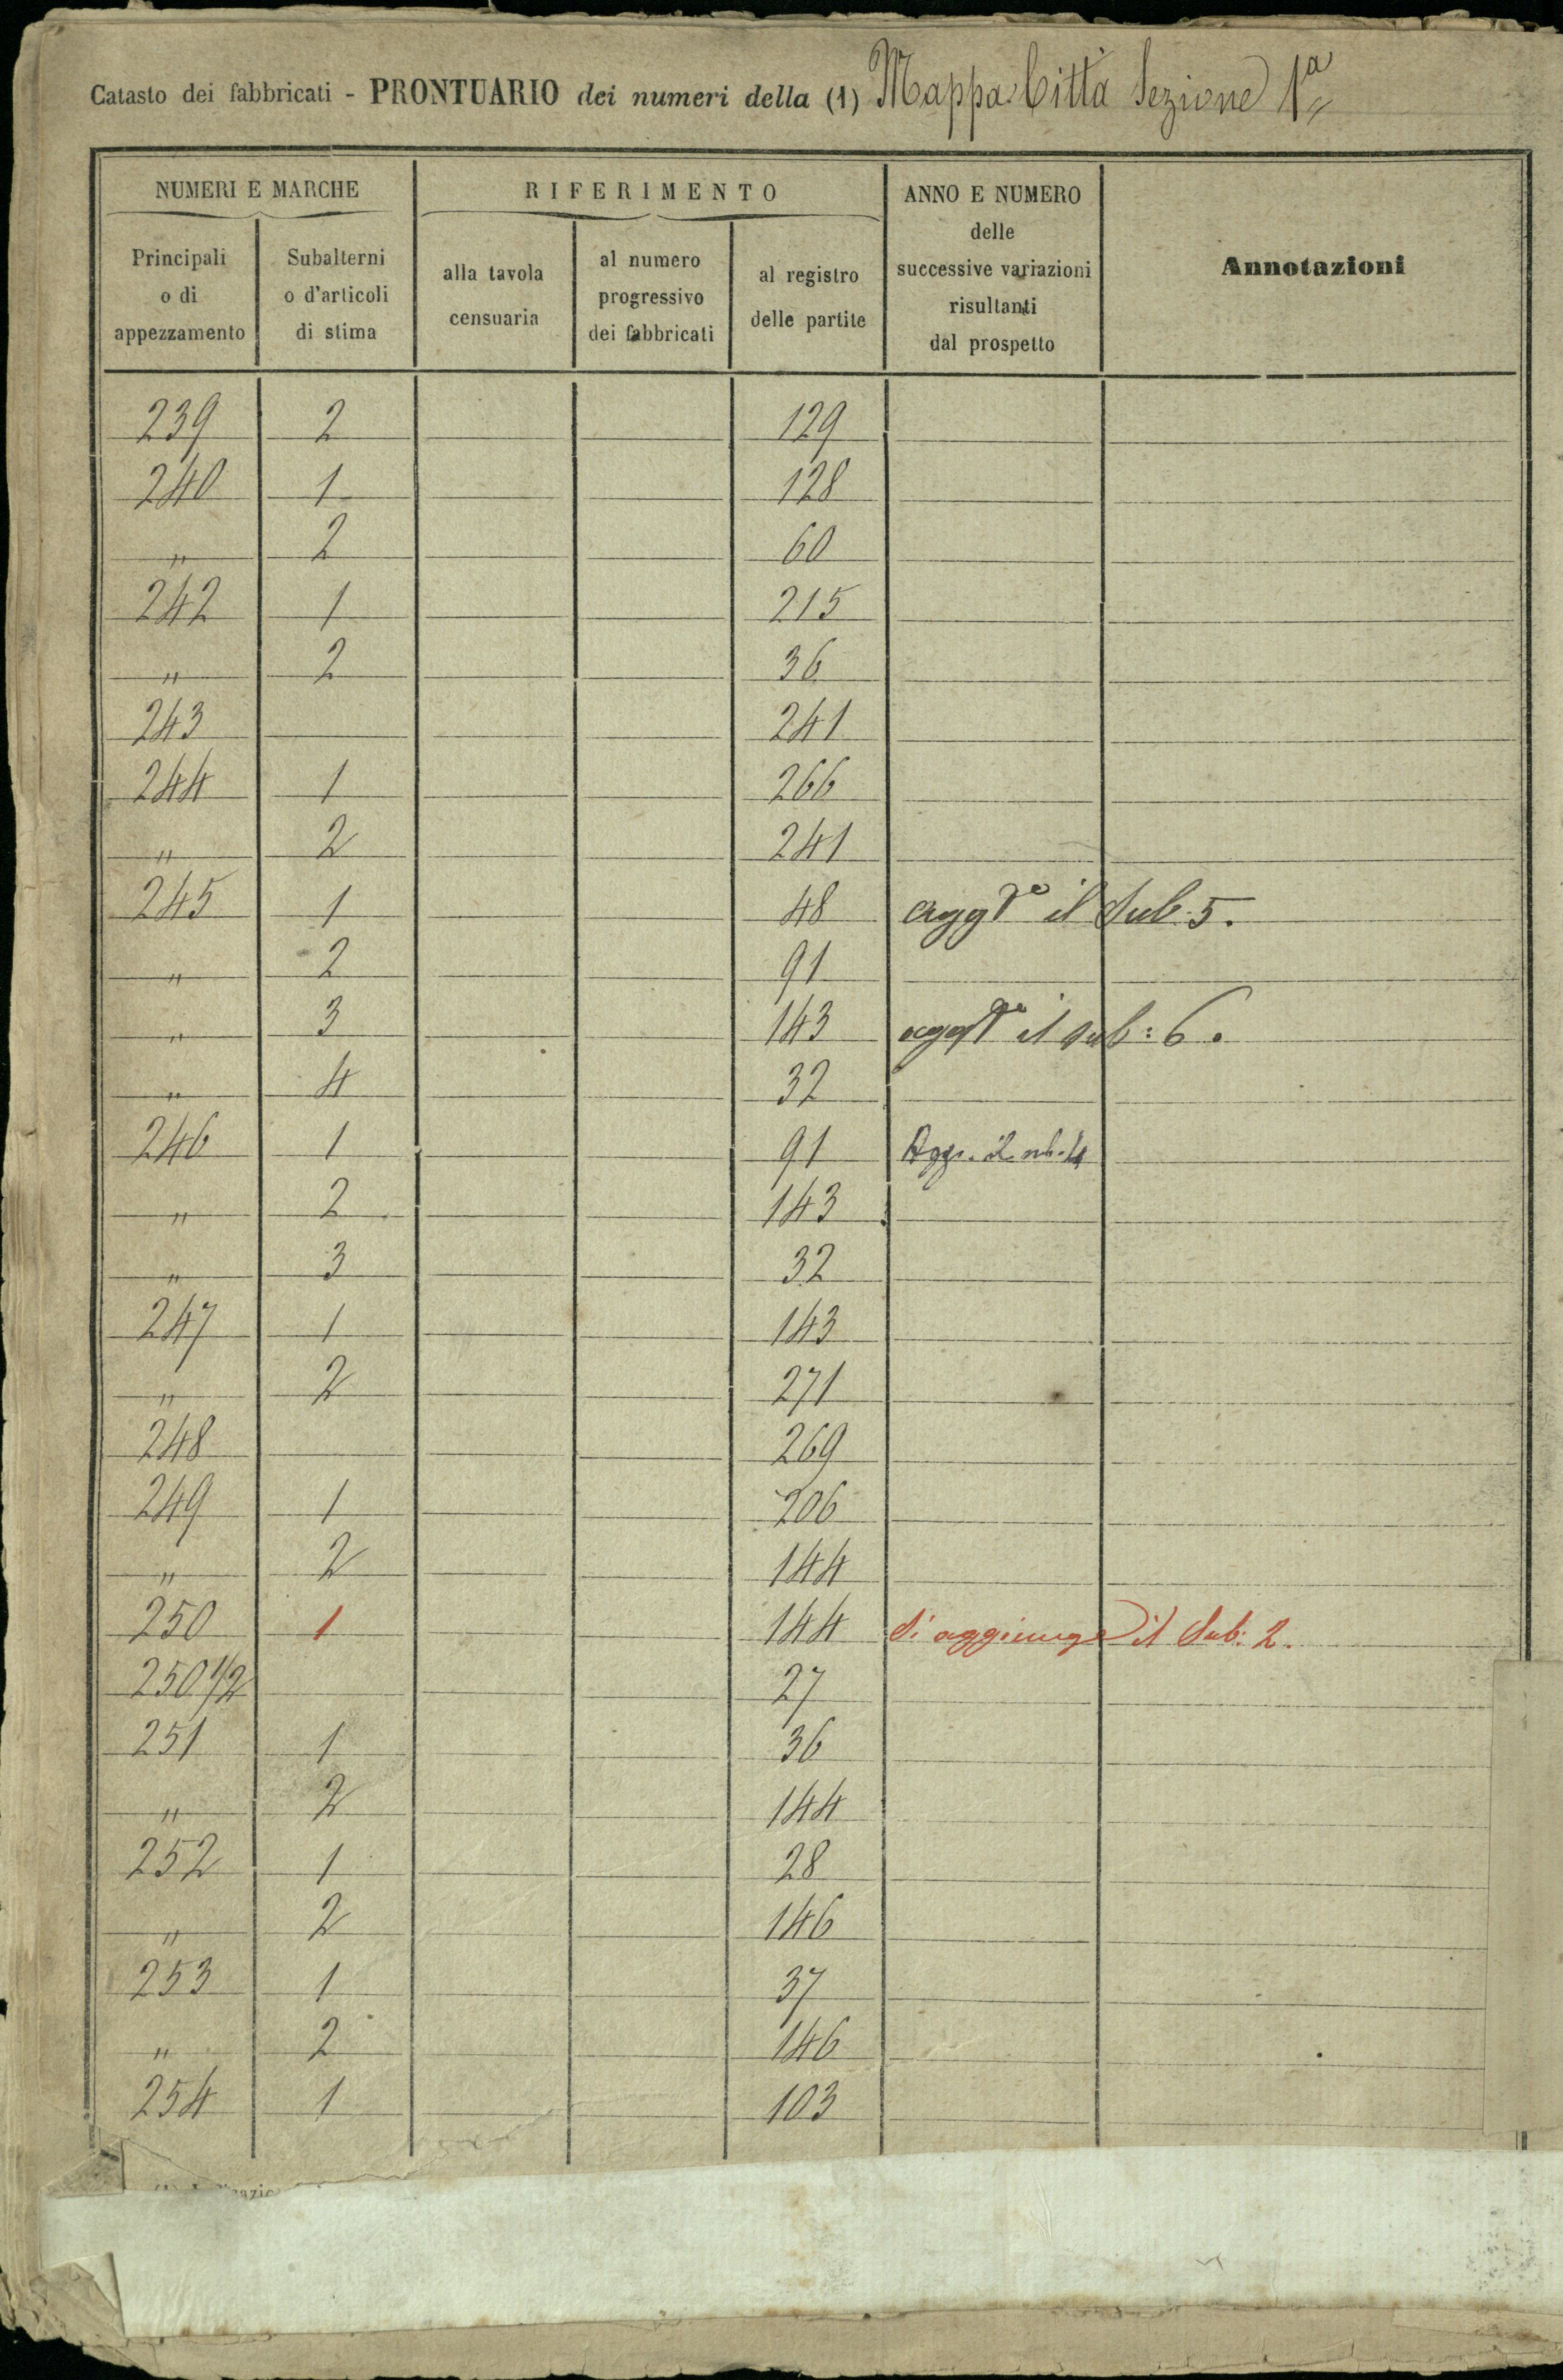 Catasto dei fabbricati - PRONTUARIO dei numeri della (1) Mappa Città Sezione 1ª
NUMERI E MARCHE
RIFERIMENTO
ANNO E NUMERO
delle
successive variazioni
risultanti
dal prospetto
Annotazioni
Principali
o di
appezzamento
Subalterni
o d'articoli
di stima
alla tavola
censuaria
al numero
progressivo
dei fabbricati
al registro
delle partite
239 2 129
240 1 128
" 2 60
242 1 215
" 2 36
243 241
244 1 266
" 2 241
245 1 48 aggᵗᵒ il Sub. 5.
" 2 91
" 3 143 aggᵗᵒ il sub: 6.
" 4 32
246 1 91 Agg. il sub. 4
" 2 143
" 3 32
247 1 143
" 2 271
248 269
249 1 206
" 2 144
250 1 144 Si aggiunge il Sub: 2.
250 1/2 27
251 1 36
" 2 144
252 1 28
" 2 146
253 1 37
" 2 146
254 1 103